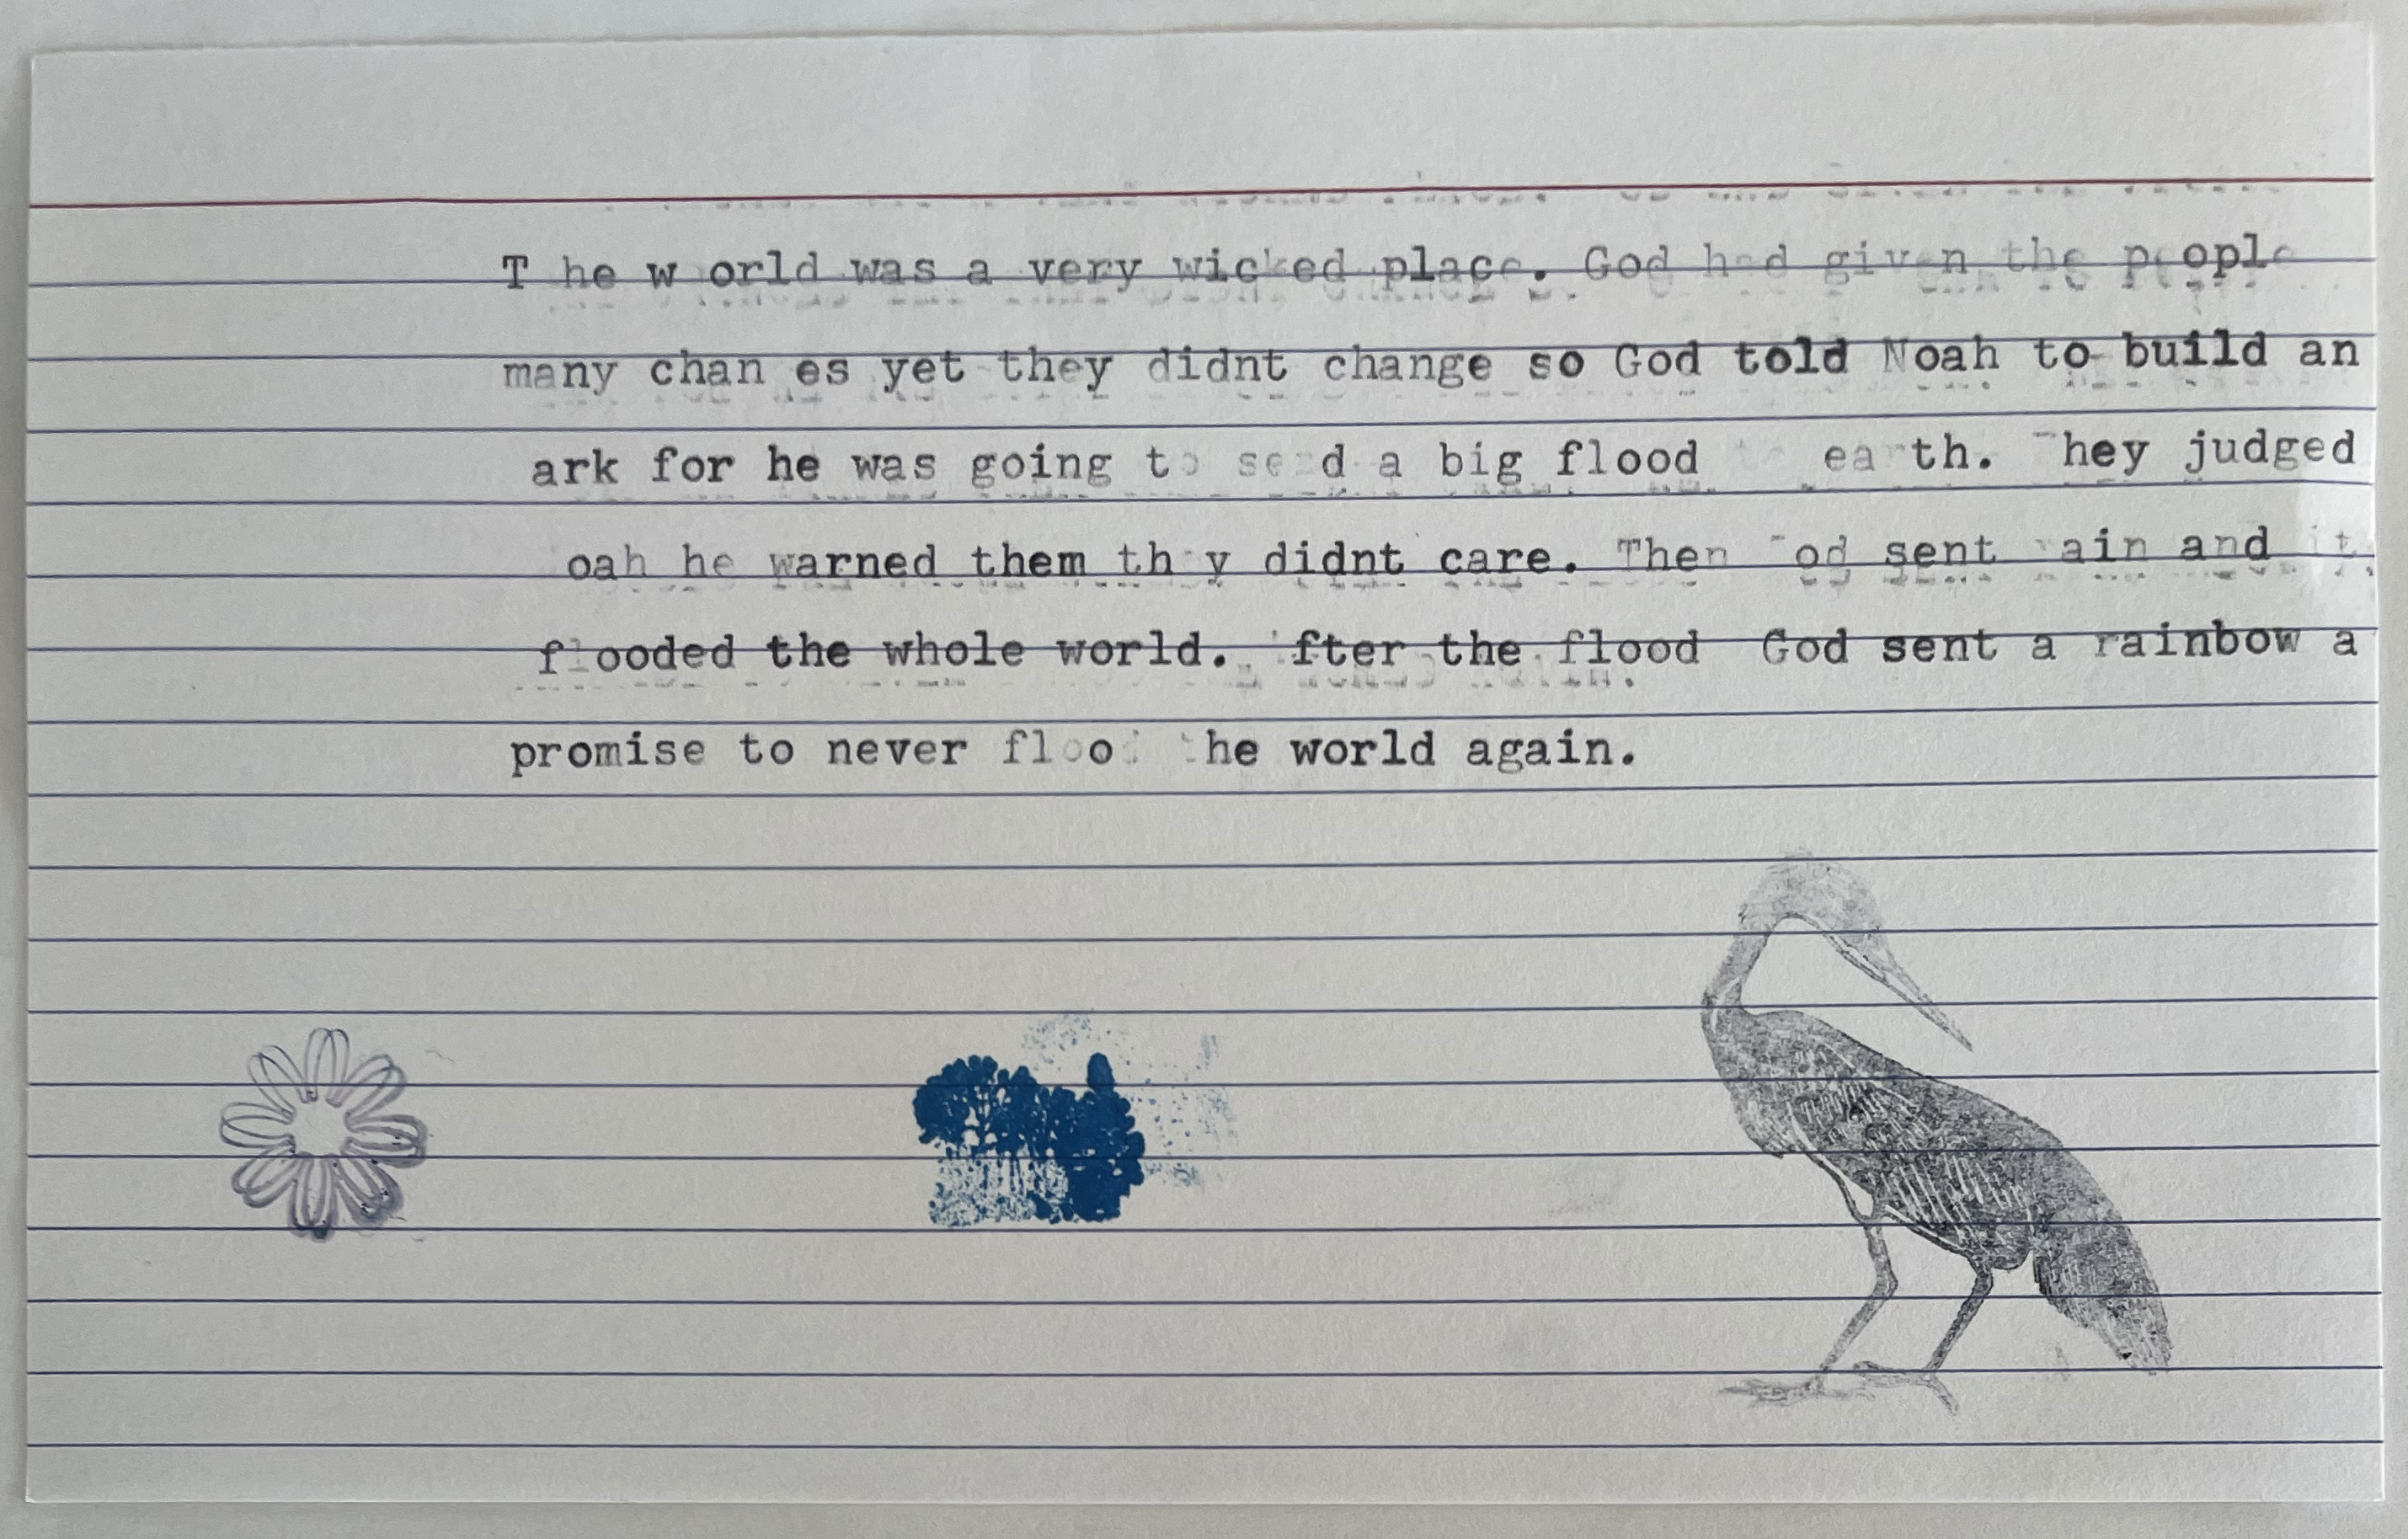 T he w orld was a very wicked place. God had given the people
many chan es yet they didnt change so God told Noah to build an
ark for he was going to send a big flood to earth. They judged
oah he warned them they didnt care. Then God sent rain and it
flooded the whole world. After the flood God sent a rainbow a
promise to never flood the world again.